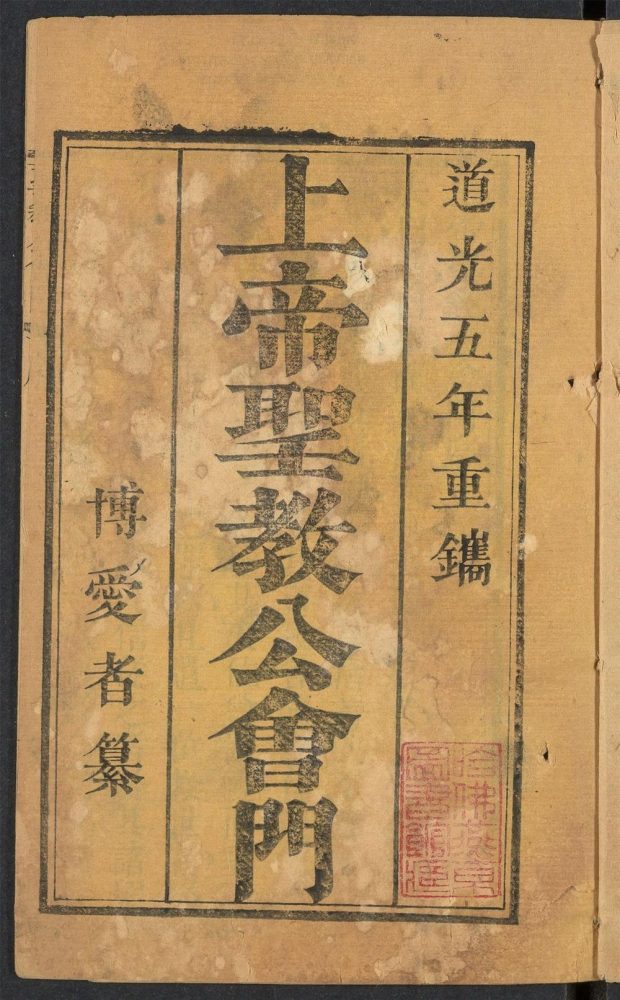 道光五年重鐫
上帝聖教公會門
博愛者纂